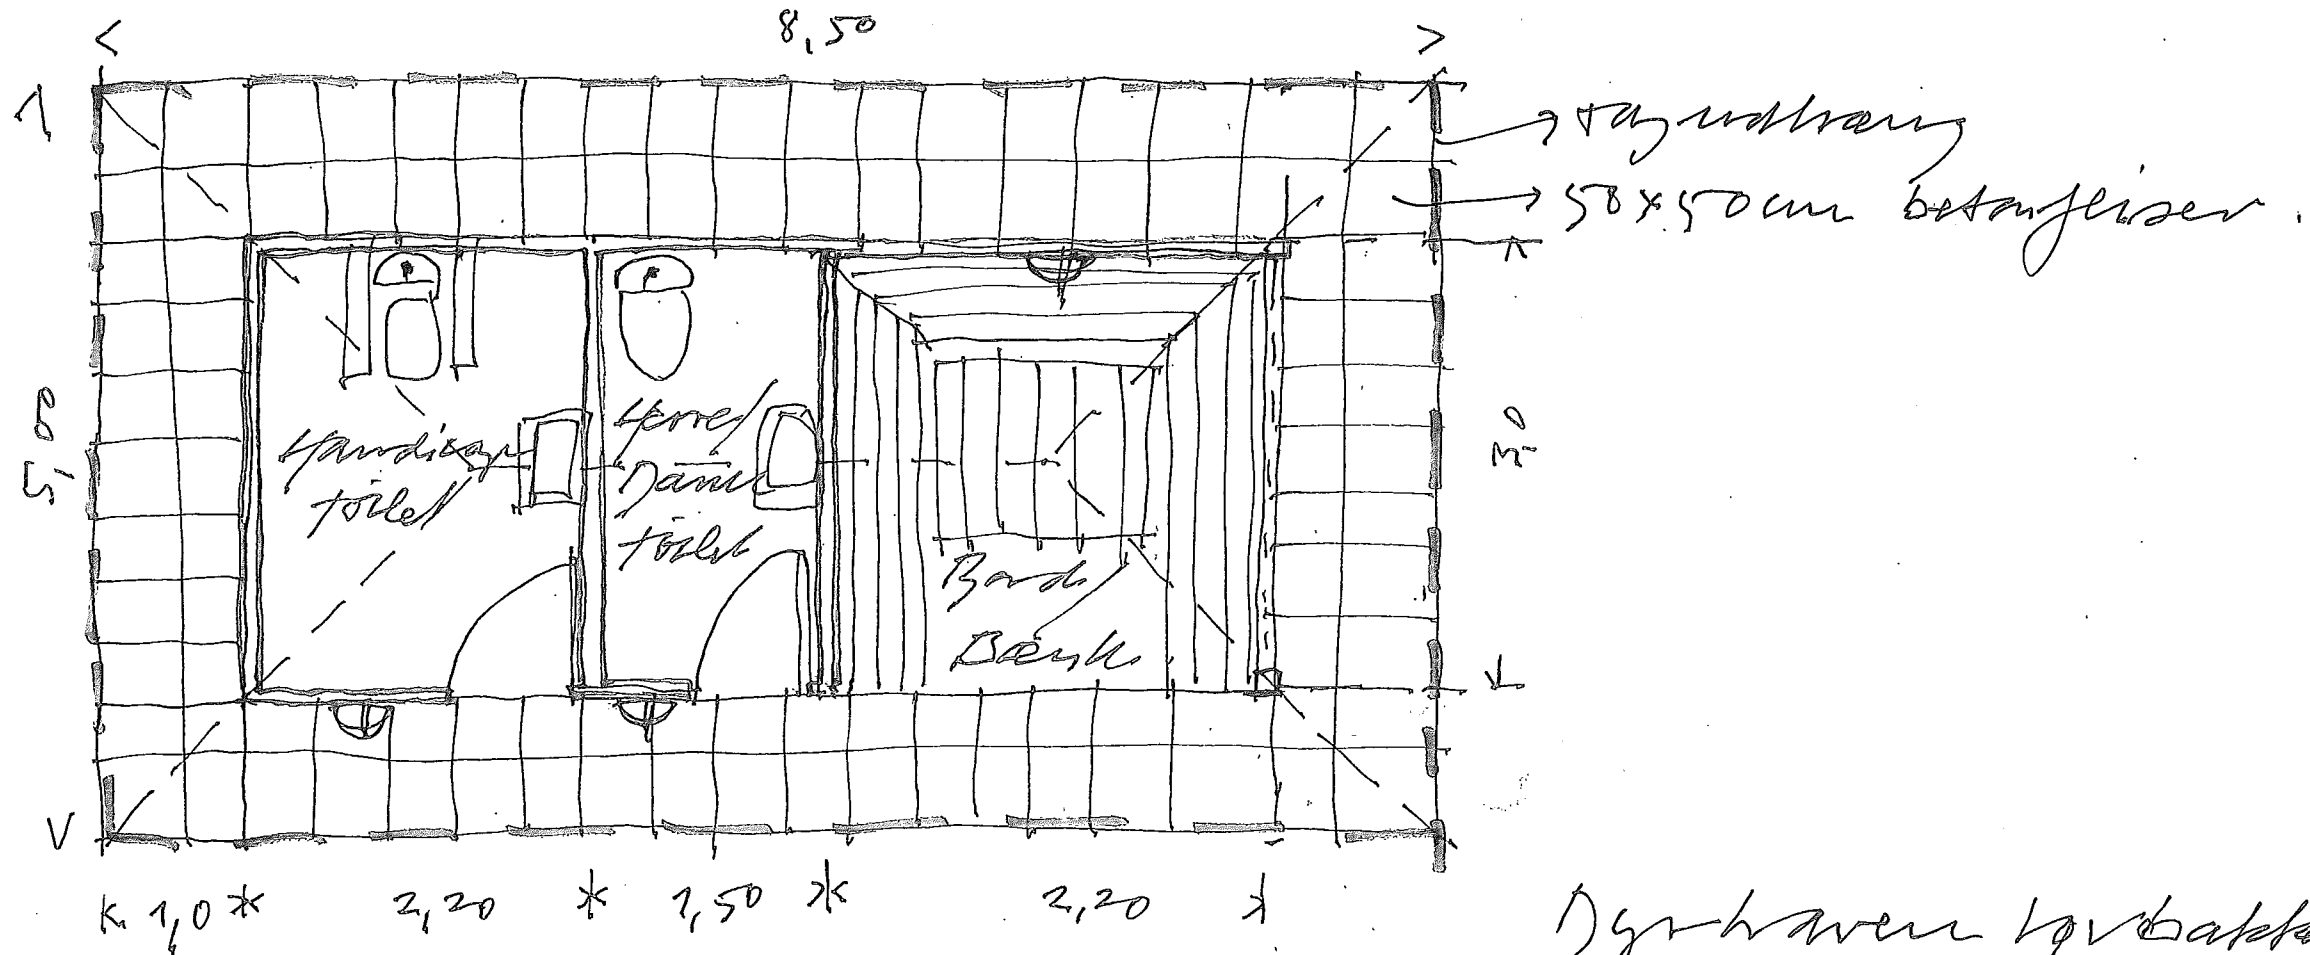 8,50
tagudhæng
50x50cm betonfliser.
5,00
3,0
Handikap
toilet
Herre/
Dame
toilet
Bord
Bænk
1,0
2,20
1,50
2,20
Dyrehaven